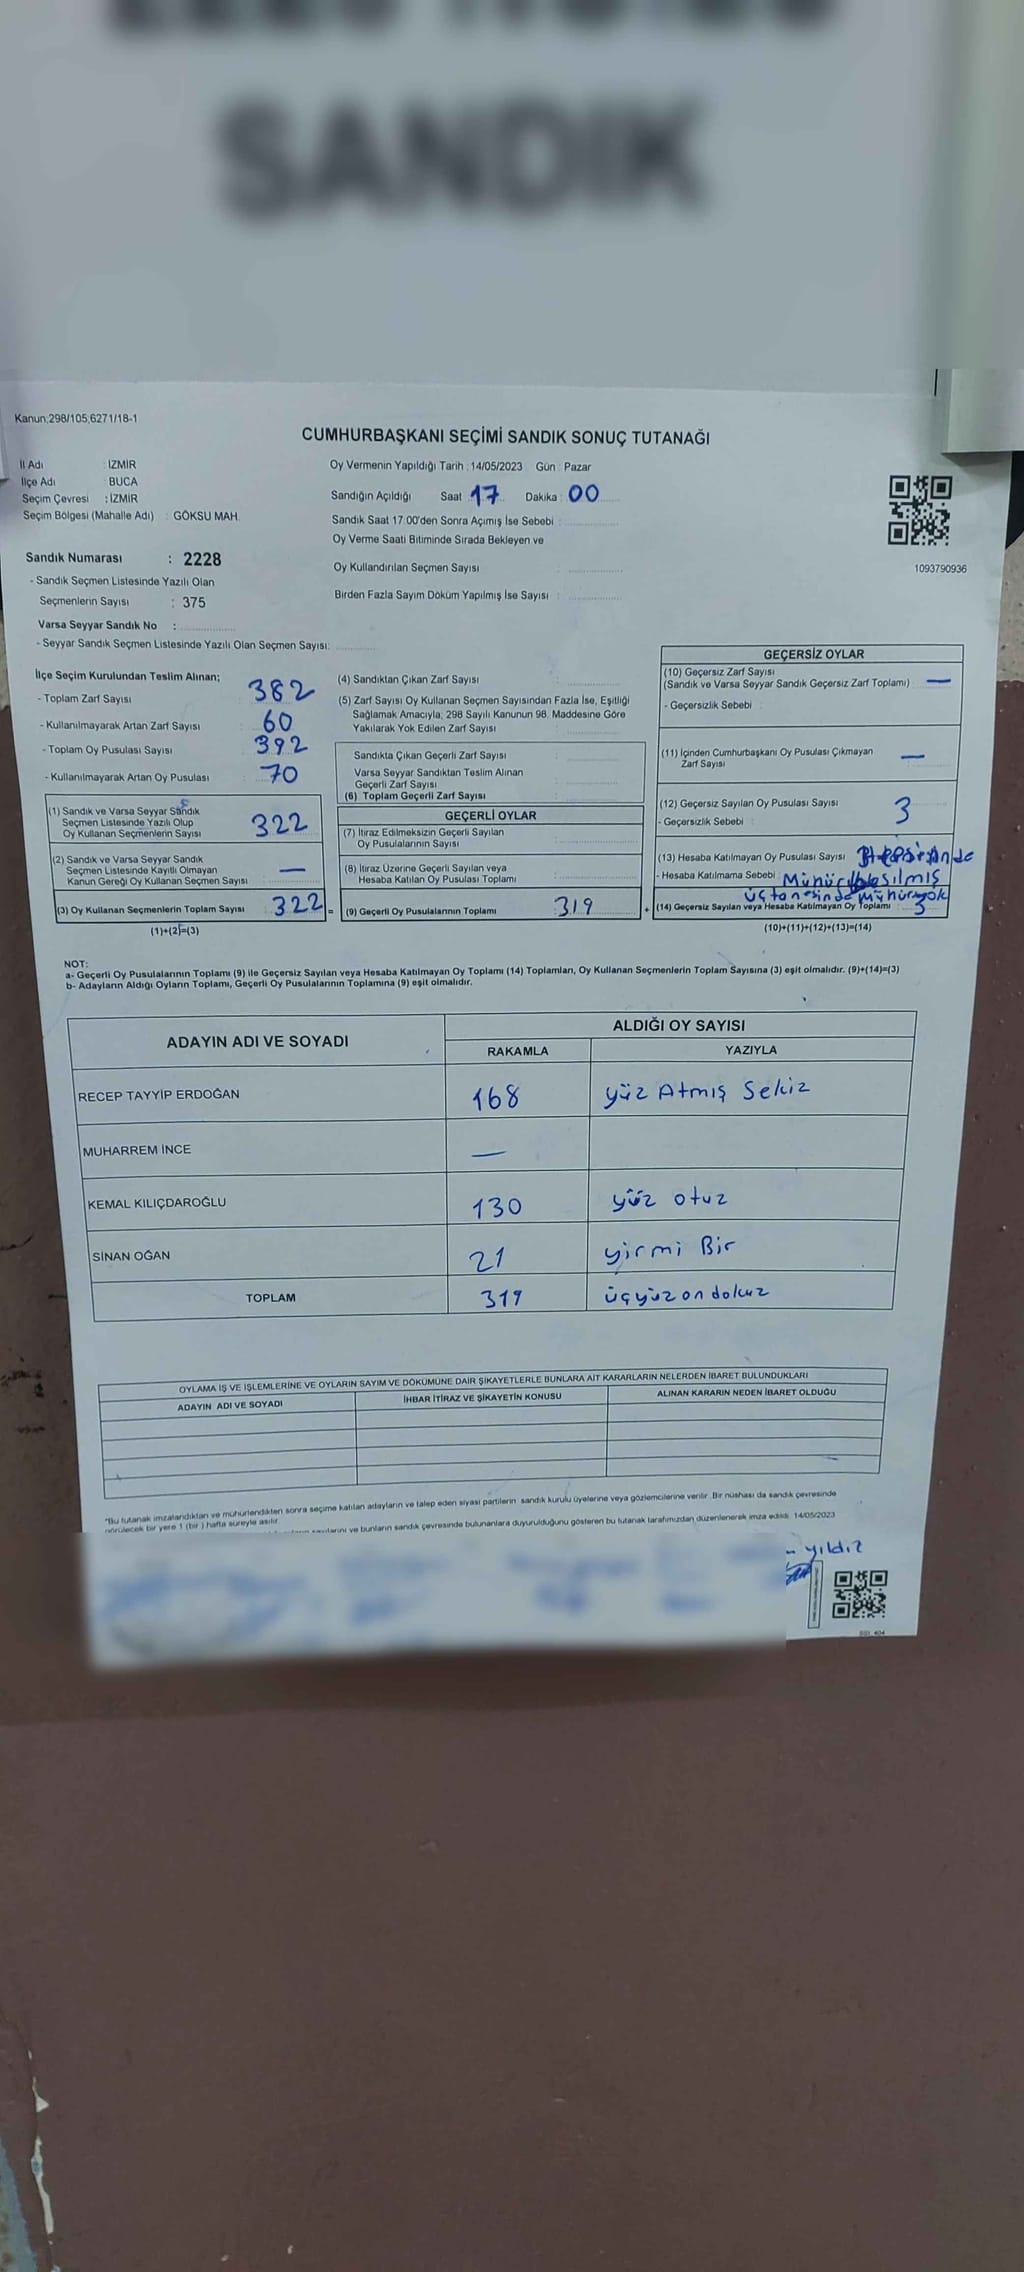 SANDIK
Kanun;298/105;6271/18-1
CUMHURBAŞKANI SEÇİMİ SANDIK SONUÇ TUTANAĞI
İl Adı : İZMİR
İlçe Adı : BUCA
Seçim Çevresi : İZMİR
Seçim Bölgesi (Mahalle Adı) : GÖKSU MAH.
Oy Vermenin Yapıldığı Tarih : 14/05/2023 Gün : Pazar
Sandığın Açıldığı Saat 17 Dakika : 00
Sandık Saat 17:00'den Sonra Açımış İse Sebebi :
Oy Verme Saati Bitiminde Sırada Bekleyen ve
Oy Kullandırılan Seçmen Sayısı :
Birden Fazla Sayım Döküm Yapılmış İse Sayısı :
1093790936
Sandık Numarası : 2228
- Sandık Seçmen Listesinde Yazılı Olan
Seçmenlerin Sayısı : 375
Varsa Seyyar Sandık No :
- Seyyar Sandık Seçmen Listesinde Yazılı Olan Seçmen Sayısı:
İlçe Seçim Kurulundan Teslim Alınan;
- Toplam Zarf Sayısı : 382
- Kullanılmayarak Artan Zarf Sayısı : 60
- Toplam Oy Pusulası Sayısı : 392
- Kullanılmayarak Artan Oy Pusulası : 70
(1) Sandık ve Varsa Seyyar Sandık
Seçmen Listesinde Yazılı Olup
Oy Kullanan Seçmenlerin Sayısı 322
(2) Sandık ve Varsa Seyyar Sandık
Seçmen Listesinde Kayıtlı Olmayan
Kanun Gereği Oy Kullanan Seçmen Sayısı : —
(3) Oy Kullanan Seçmenlerin Toplam Sayısı : 322 =
(1)+(2)=(3)
(4) Sandıktan Çıkan Zarf Sayısı :
(5) Zarf Sayısı Oy Kullanan Seçmen Sayısından Fazla İse, Eşitliği
Sağlamak Amacıyla; 298 Sayılı Kanunun 98. Maddesine Göre
Yakılarak Yok Edilen Zarf Sayısı :
Sandıkta Çıkan Geçerli Zarf Sayısı :
Varsa Seyyar Sandıktan Teslim Alınan
Geçerli Zarf Sayısı :
(6) Toplam Geçerli Zarf Sayısı :
GEÇERLİ OYLAR
(7) İtiraz Edilmeksizin Geçerli Sayılan
Oy Pusulalarının Sayısı :
(8) İtiraz Üzerine Geçerli Sayılan veya
Hesaba Katılan Oy Pusulası Toplamı :
(9) Geçerli Oy Pusulalarının Toplamı : 319 +
GEÇERSİZ OYLAR
(10) Geçersiz Zarf Sayısı
(Sandık ve Varsa Seyyar Sandık Geçersiz Zarf Toplamı) : —
- Geçersizlik Sebebi :
(11) İçinden Cumhurbaşkanı Oy Pusulası Çıkmayan
Zarf Sayısı : —
(12) Geçersiz Sayılan Oy Pusulası Sayısı : 3
- Geçersizlik Sebebi :
(13) Hesaba Katılmayan Oy Pusulası Sayısı
- Hesaba Katılmama Sebebi :
üç tanesinde mühür yok
(14) Geçersiz Sayılan veya Hesaba Katılmayan Oy Toplamı : 3
(10)+(11)+(12)+(13)=(14)
NOT:
a- Geçerli Oy Pusulalarının Toplamı (9) ile Geçersiz Sayılan veya Hesaba Katılmayan Oy Toplamı (14) Toplamları, Oy Kullanan Seçmenlerin Toplam Sayısına (3) eşit olmalıdır. (9)+(14)=(3)
b- Adayların Aldığı Oyların Toplamı, Geçerli Oy Pusulalarının Toplamına (9) eşit olmalıdır.
ADAYIN ADI VE SOYADI
ALDIĞI OY SAYISI
RAKAMLA YAZIYLA
RECEP TAYYİP ERDOĞAN 168 Yüz Atmış Sekiz
MUHARREM İNCE —
KEMAL KILIÇDAROĞLU 130 yüz otuz
SİNAN OĞAN 21 yirmi Bir
TOPLAM 319 üçyüz on dokuz
OYLAMA İŞ VE İŞLEMLERİNE VE OYLARIN SAYIM VE DÖKÜMÜNE DAİR ŞİKAYETLERLE BUNLARA AİT KARARLARIN NELERDEN İBARET BULUNDUKLARI
ADAYIN ADI VE SOYADI İHBAR İTİRAZ VE ŞİKAYETİN KONUSU ALINAN KARARIN NEDEN İBARET OLDUĞU
*Bu tutanak imzalandıktan ve mühürlendikten sonra seçime katılan adayların ve talep eden siyasi partilerin sandık kurulu üyelerine veya gözlemcilerine verilir. Bir nüshası da sandık çevresinde
görülecek bir yere 1 (bir) hafta süreyle asılır.
sayılarını ve bunların sandık çevresinde bulunanlara duyurulduğunu gösteren bu tutanak tarafımızdan düzenlenerek imza edildi. 14/05/2023
yıldız